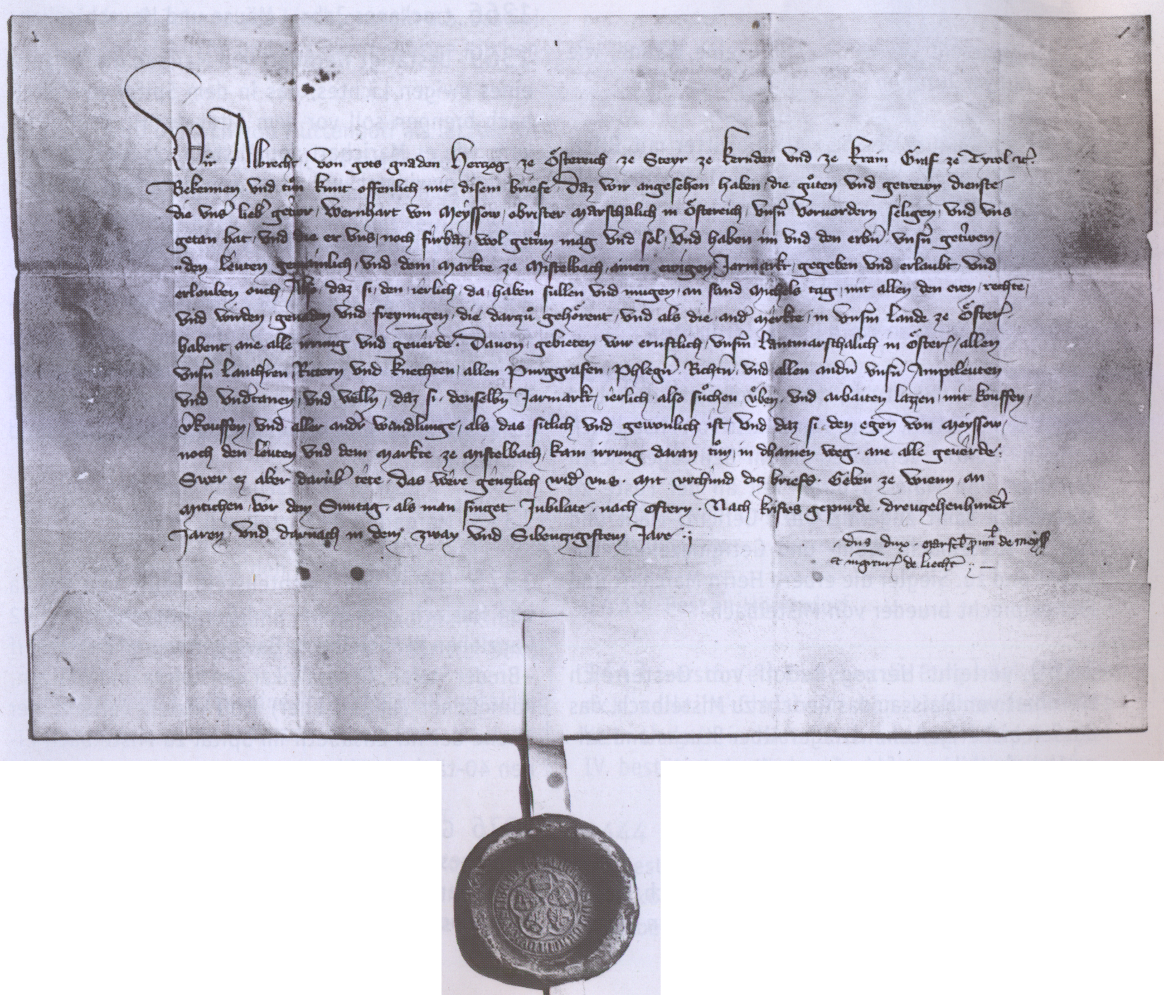 Wir Albrecht von gots gnaden Hertzog ze Österreich ze Steyr ze Kernden vnd ze Krain Graf ze Tyrol etc.
Bekennen vnd tůn kunt offenlich mit disem briefe, Daz wir angesehen haben, die gůten vnd getrewn dienste
die vns lieber getrewr, Wernhart von Meyssow, obrister Marschalich in Österreich, vnsern voruordern seligen, vnd vns
getan hat, vnd die er vns, noch fürbaz, wol getůn mag vnd sol, vnd haben im vnd den erbern vnsern getrewn,
.. den leuten gemainlich, vnd dem Markte ze Mistelbach, ainen ewigen Jarmarkt, gegeben vnd erlaubt, vnd
erlouben ouch, Also, daz si, den ierlich, da haben sullen vnd mugen, an sand Michels tag, mit allen den eren, rechten,
vnd wirden, genaden vnd freyungen, die dartzů gehörent, vnd als die ander merkte, in vnserm Lande ze Österr
habent, ane alle irrung vnd geuerde. Dauon, gebieten wir ernstlich, vnserm Lantmarschalich in Österr, allen
vnsern Lantherren Rittern vnd Knechten, allen Purggrafen, Phlegern, Richtern, vnd allen andern vnsern Amptleuten
vnd vndertanen, vnd wellen, daz si, denselben Jarmarkt, ierlich, also sůchen üben, vnd arbaiten lazzen, mit kouffen,
verkouffen, vnd aller andrer wandlunge, als das sitlich vnd gewonlich ist, vnd daz si, den egenanten von Meyssow,
noch den leuten vnd dem Markte ze Mistelbach, kain irrung daran tůn, in dhainen weg, ane alle geuerde.
Swer ez aber darüber tete, Das were gentzlich wider vns. Mit vrchund ditz briefs. Geben ze Wienn, an
Mitichen, vor dem Suntag, als man singet Jubilate, nach ostern. Nach Kristes gepurde, dreutzehenhundert
Jaren, vnd darnach in dem, zway vnd Sibentzigistem Jare
dns dux marsch de Meyss
et de Liecht